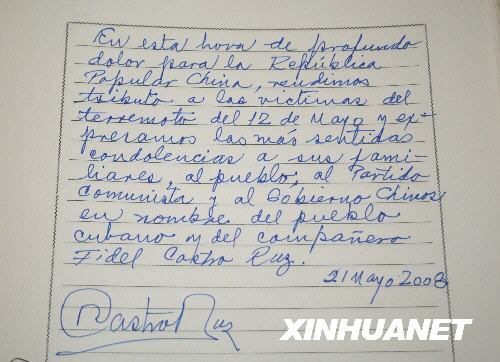 En esta hora de profundo
dolor para la República
Popular China, rendimos
tributo a las victimas del
terremoto del 12 de Mayo y ex-
presamos las más sentidas
condolencias a sus fami-
liares, al pueblo, al Partido
Comunista y al Gobierno Chinos
en nombre del pueblo
cubano y del compañero
Fidel Castro Ruz.
21 Mayo 2008
RCastro Ruz
XINHUANET